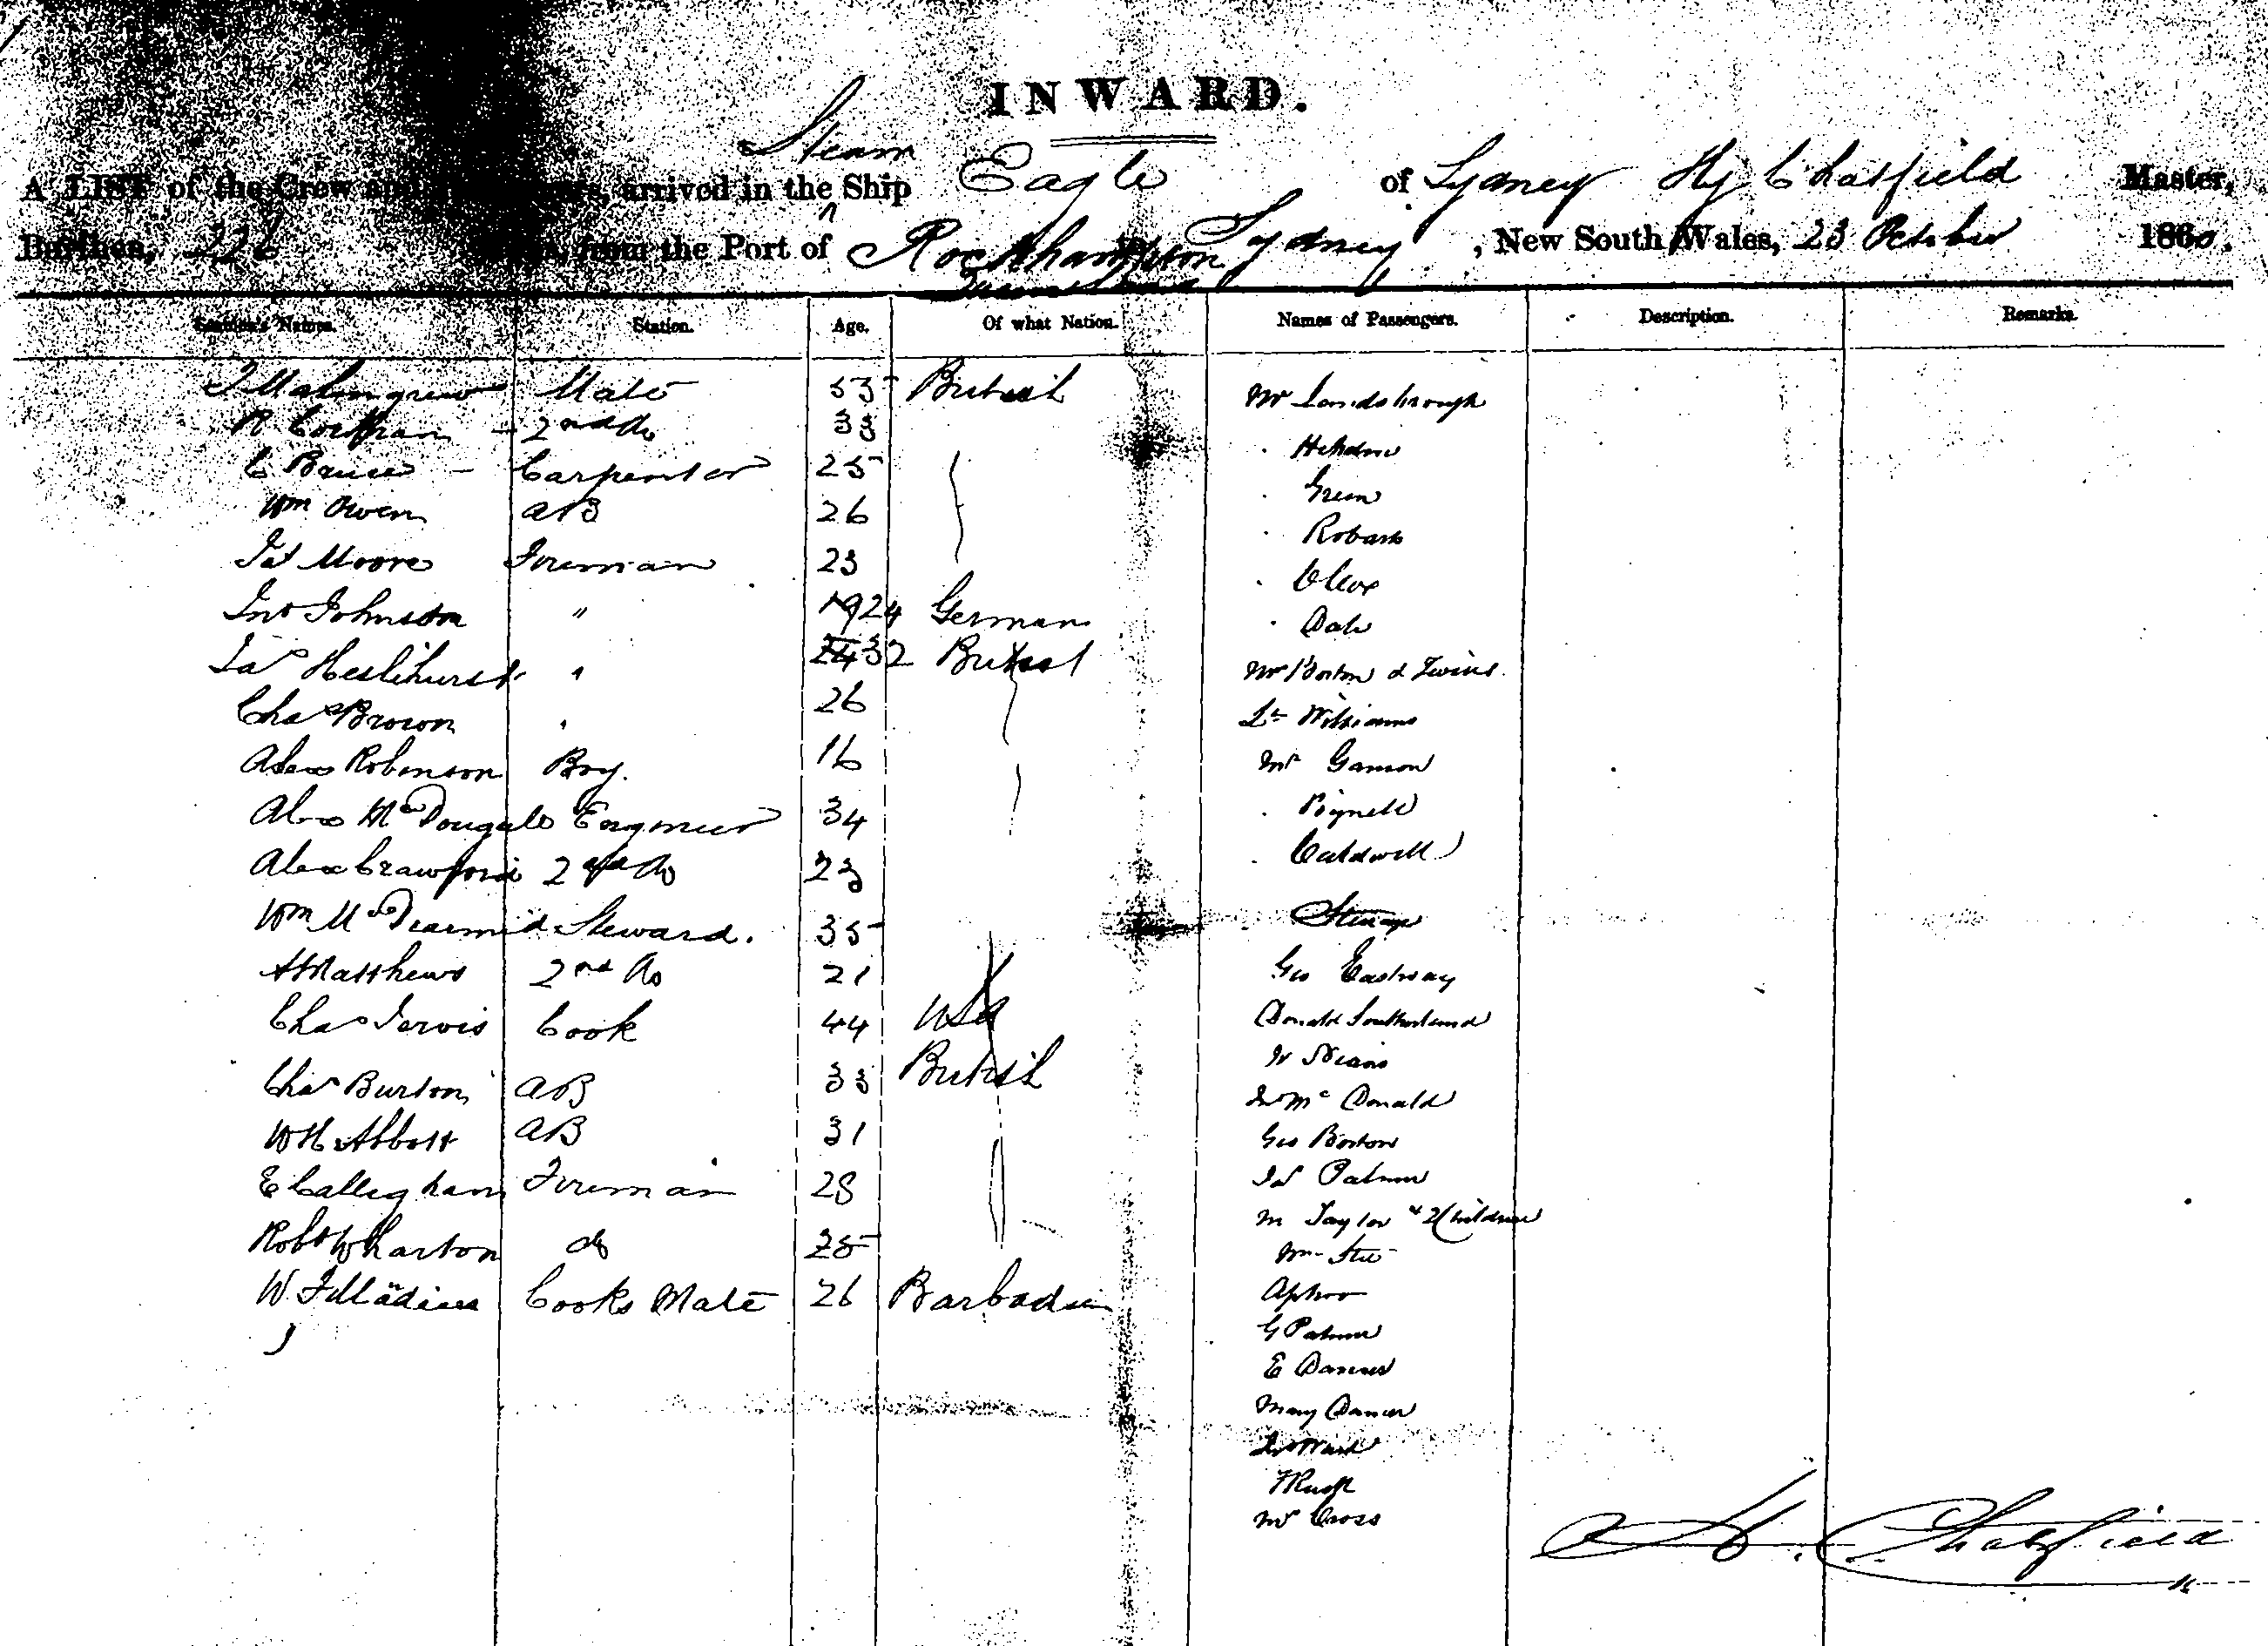 INWARD.
A LIST of the Crew and arrived in the Steam Ship Eagle of Sydney Hy Chatfield Master,
Burthen, 226 from the Port of Rockhampton Sydney, New South Wales, 23 October 1860.
Names. Station. Age. Of what Nation. Names of Passengers. Description. Remarks.
Mate 53 British Mr Landsborough
R 2nd Do 33
C Bruce Carpenter 25 Green
Wm Owen AB 26 Robarts
Jas Moore Fireman 23
Jno Johnson " 24 German Dale
Jas Heslihurst " 32 British Mr Borton & Twins
Chas Brown " 26 Lt Williams
Alex Robinson Boy. 16 Mr Ganson
Alex McDougale Engineer 34
Alex Crawford 2nd Do 23 Caldwell
Wm McDearmid Steward. 35 Steerage
A Matthews 2nd Do 21 Geo Eastway
Chas Jervis Cook 44 USA Donald Southerland
Chas Burton AB 33 British
WH Abbott AB 31 Jno McDonald
E Callegham Fireman 28 Geo Borton
Robt Wharton do 25 Jas Palmer
W. Cooks Mate 26 Barbados M Taylor & 2 Children
G Palmer
E Dancer
Mary Dancer
Jno Ward
F Rush
Mr Cross
H. Chatfield